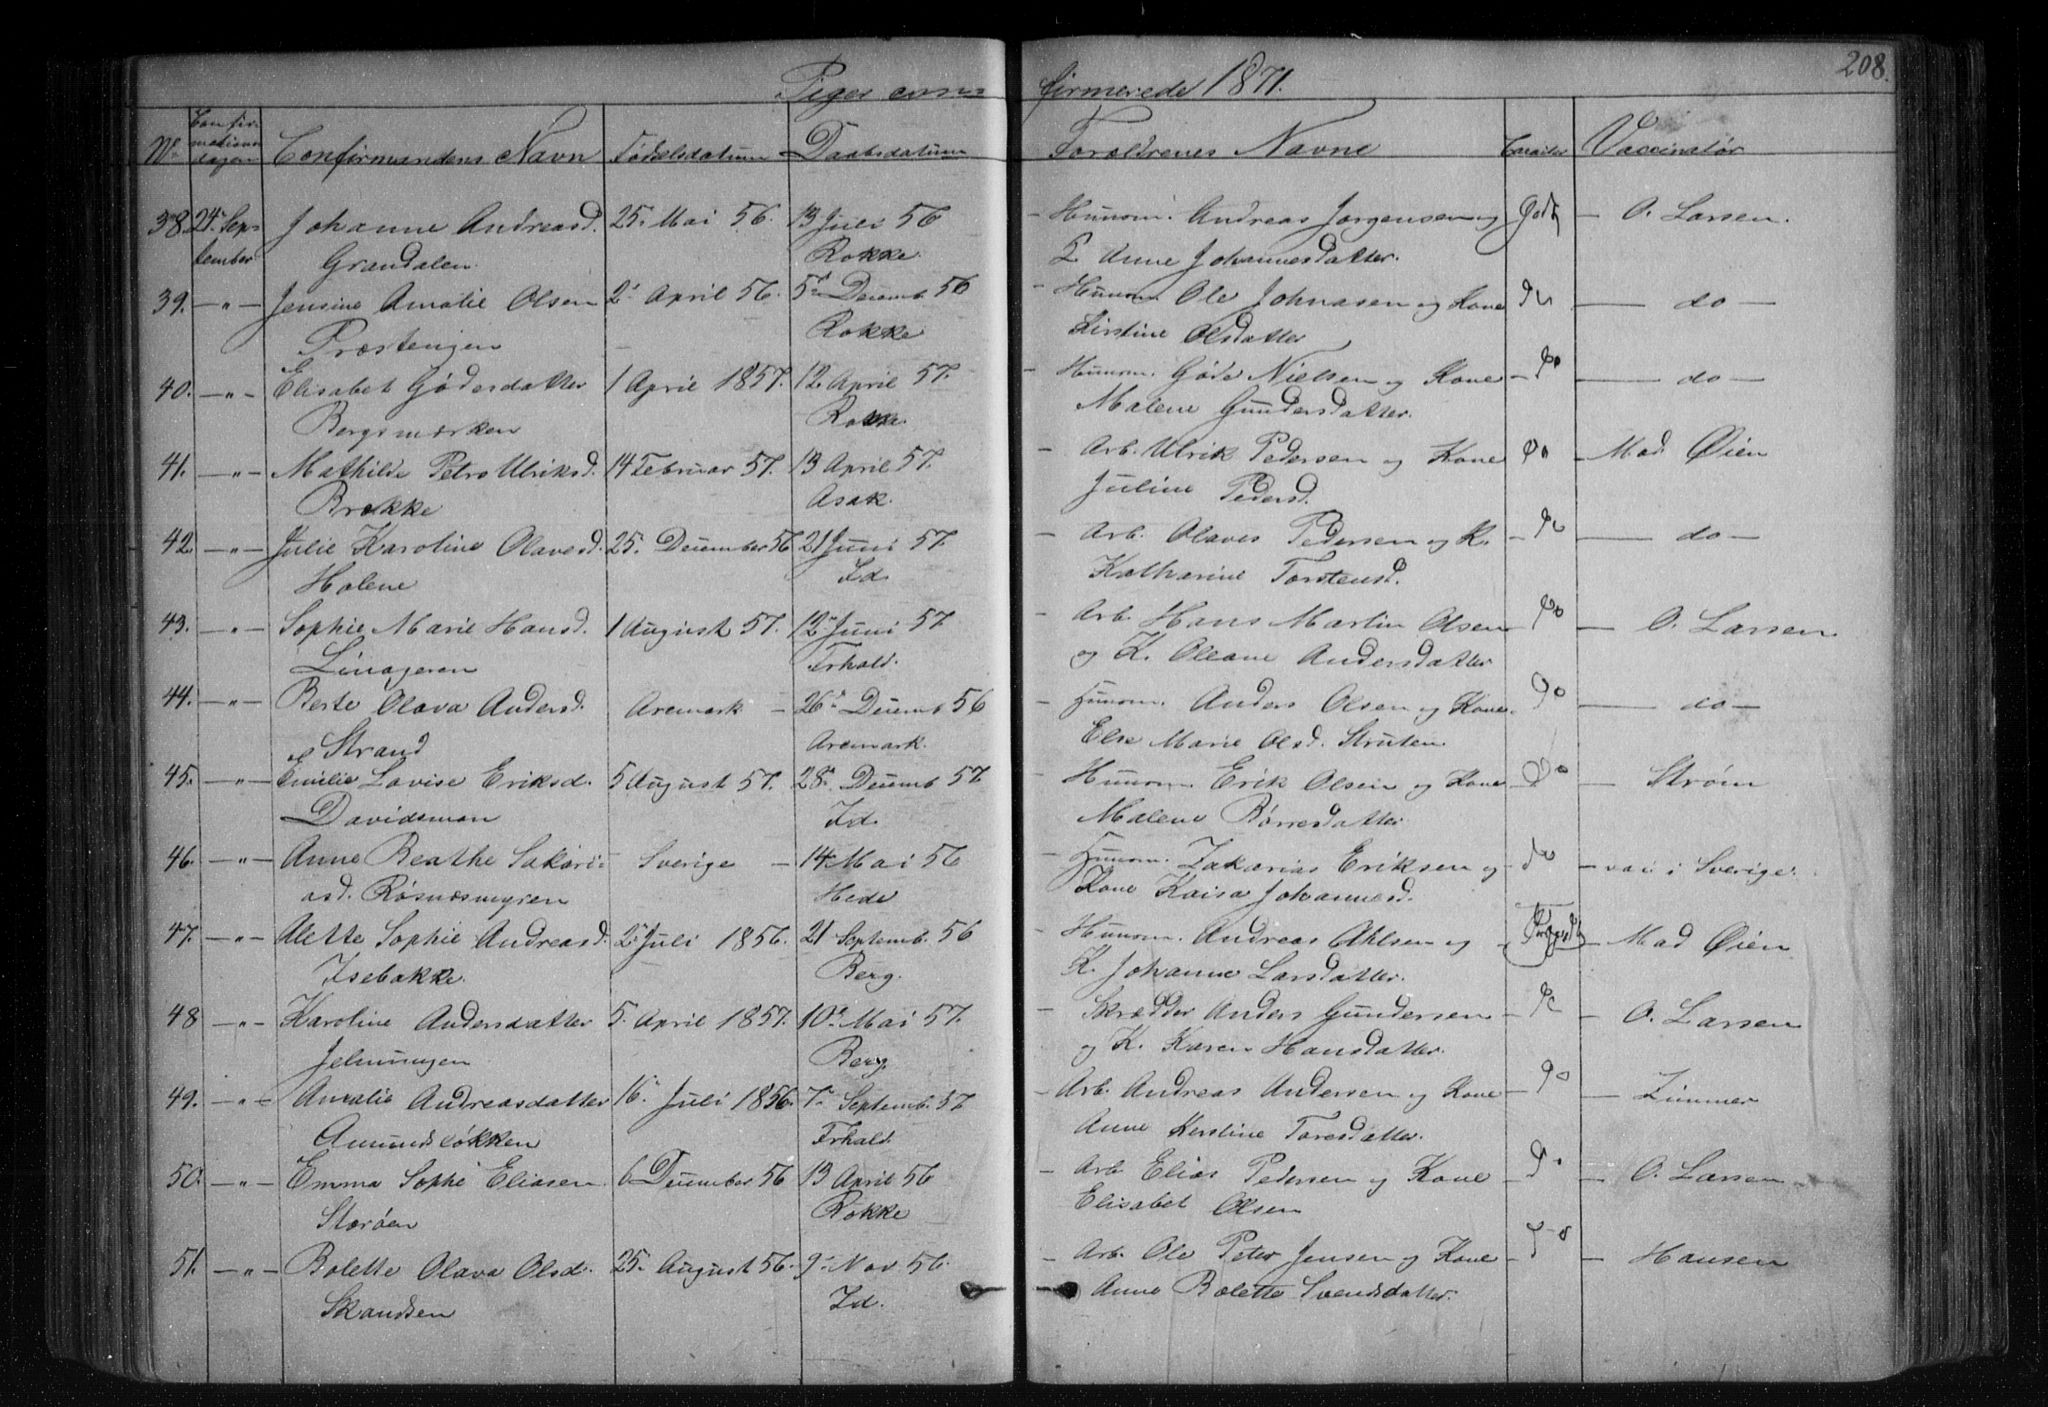 208.
Piger con= firmerede 1871.
No. Confirmationsdagen Confirmandens Navn Fødselsdatum Daabsdatum Forældrenes Navne Caracter Vaccinatør
38. 24. Sep= Johanne Andreasd. 25. Mai 56. 13 Juli 56 Huusm. Andreas Jørgensen og Godt O. Larsen.
tember Grandalen Rokke. Anne Johannesdatter.
39. -"- Jensine Amalie Olsen 2. April 56. 5. Decemb 56 Huusm. Ole Johnasen og Kone Do do
Præstengen Rokke Kirstine Olsdatter
40. -"- Elisabet Gødersdatter 1 April 1857. 12. April 57. Huusm. Gøde Nielsen og Kone Do do
Bergsmarken Rokke. Malene Gundersdatter.
41. -"- Mathilde Petra Ulriksd. 14 Februar 57. 13 April 57. Arb. Ulrik Pedersen og Kone Do Mad Øien
Brække Asak. Juline Pedersd.
42. -"- Julie Karoline Olavesd. 25. December 56 21 Juni 57. Arb. Olaves Pedersen og K. Do do
Holene Id. Katharine Torstensd.
43. -"- Sophie Marie Hansd. 1 August 57. 12 Juni 57 Arb. Hans Martin Olsen Do O. Larsen
Linageren Frhald. og K. Oleane Andersdatter
44. -"- Berte Olava Andersd. Aremark 26. Decemb 56 Huusm. Anders Olsen og Kone Do do
Strand Aremark. Else Marie Olsd. Struten
45. -"- Emilie Lovise Eriksd. 5. August 57. 28. Decemb 57 Huusm. Erik Olsen og Kone Do Strøm
Davidsmon Id. Malene Børresdatter
46. -"- Anne Beathe Sakari= Sverige 14 Mai 56 Huusm. Zakarias Eriksen og do vac i Sverige
asd. Røsnæsmyren Hede Kone Kaisa Johannesd.
47. -"- Alette Sophie Andreasd. 2. Juli 1856. 21 Septemb. 56 Huusm. Andreas Ahlsen og Mad Øien
Isebakke. Berg. K. Johanne Larsdatter.
48 -"- Karoline Andersdatter 5. April 1857. 10. Mai 57. Skrædder Anders Gundersen Do O. Larsen
Jelmungen Berg. og K. Karen Hansdatter.
49. -"- Amalie Andreasdatter 16. Juli 1856. 7. Septemb. 57 Arb. Andreas Andersen og Kone Do Zimmer
Amundsløkken Frhald. Anne Kerstine Toresdatter.
50. -"- Emma Sophie Eliasen. 6 December 56 13 April 56 Arb Elias Pedersen og Kone Do O. Larsen
Storøen Rokke Elisabet Olsen
51. -"- Bolette Olava Olsd. 25. August 56. 9. Nov. 56. Arb. Ole Peter Jensen og Kone Do Hansen
Skandsen Id. Anne Bolette Svendsdatter.